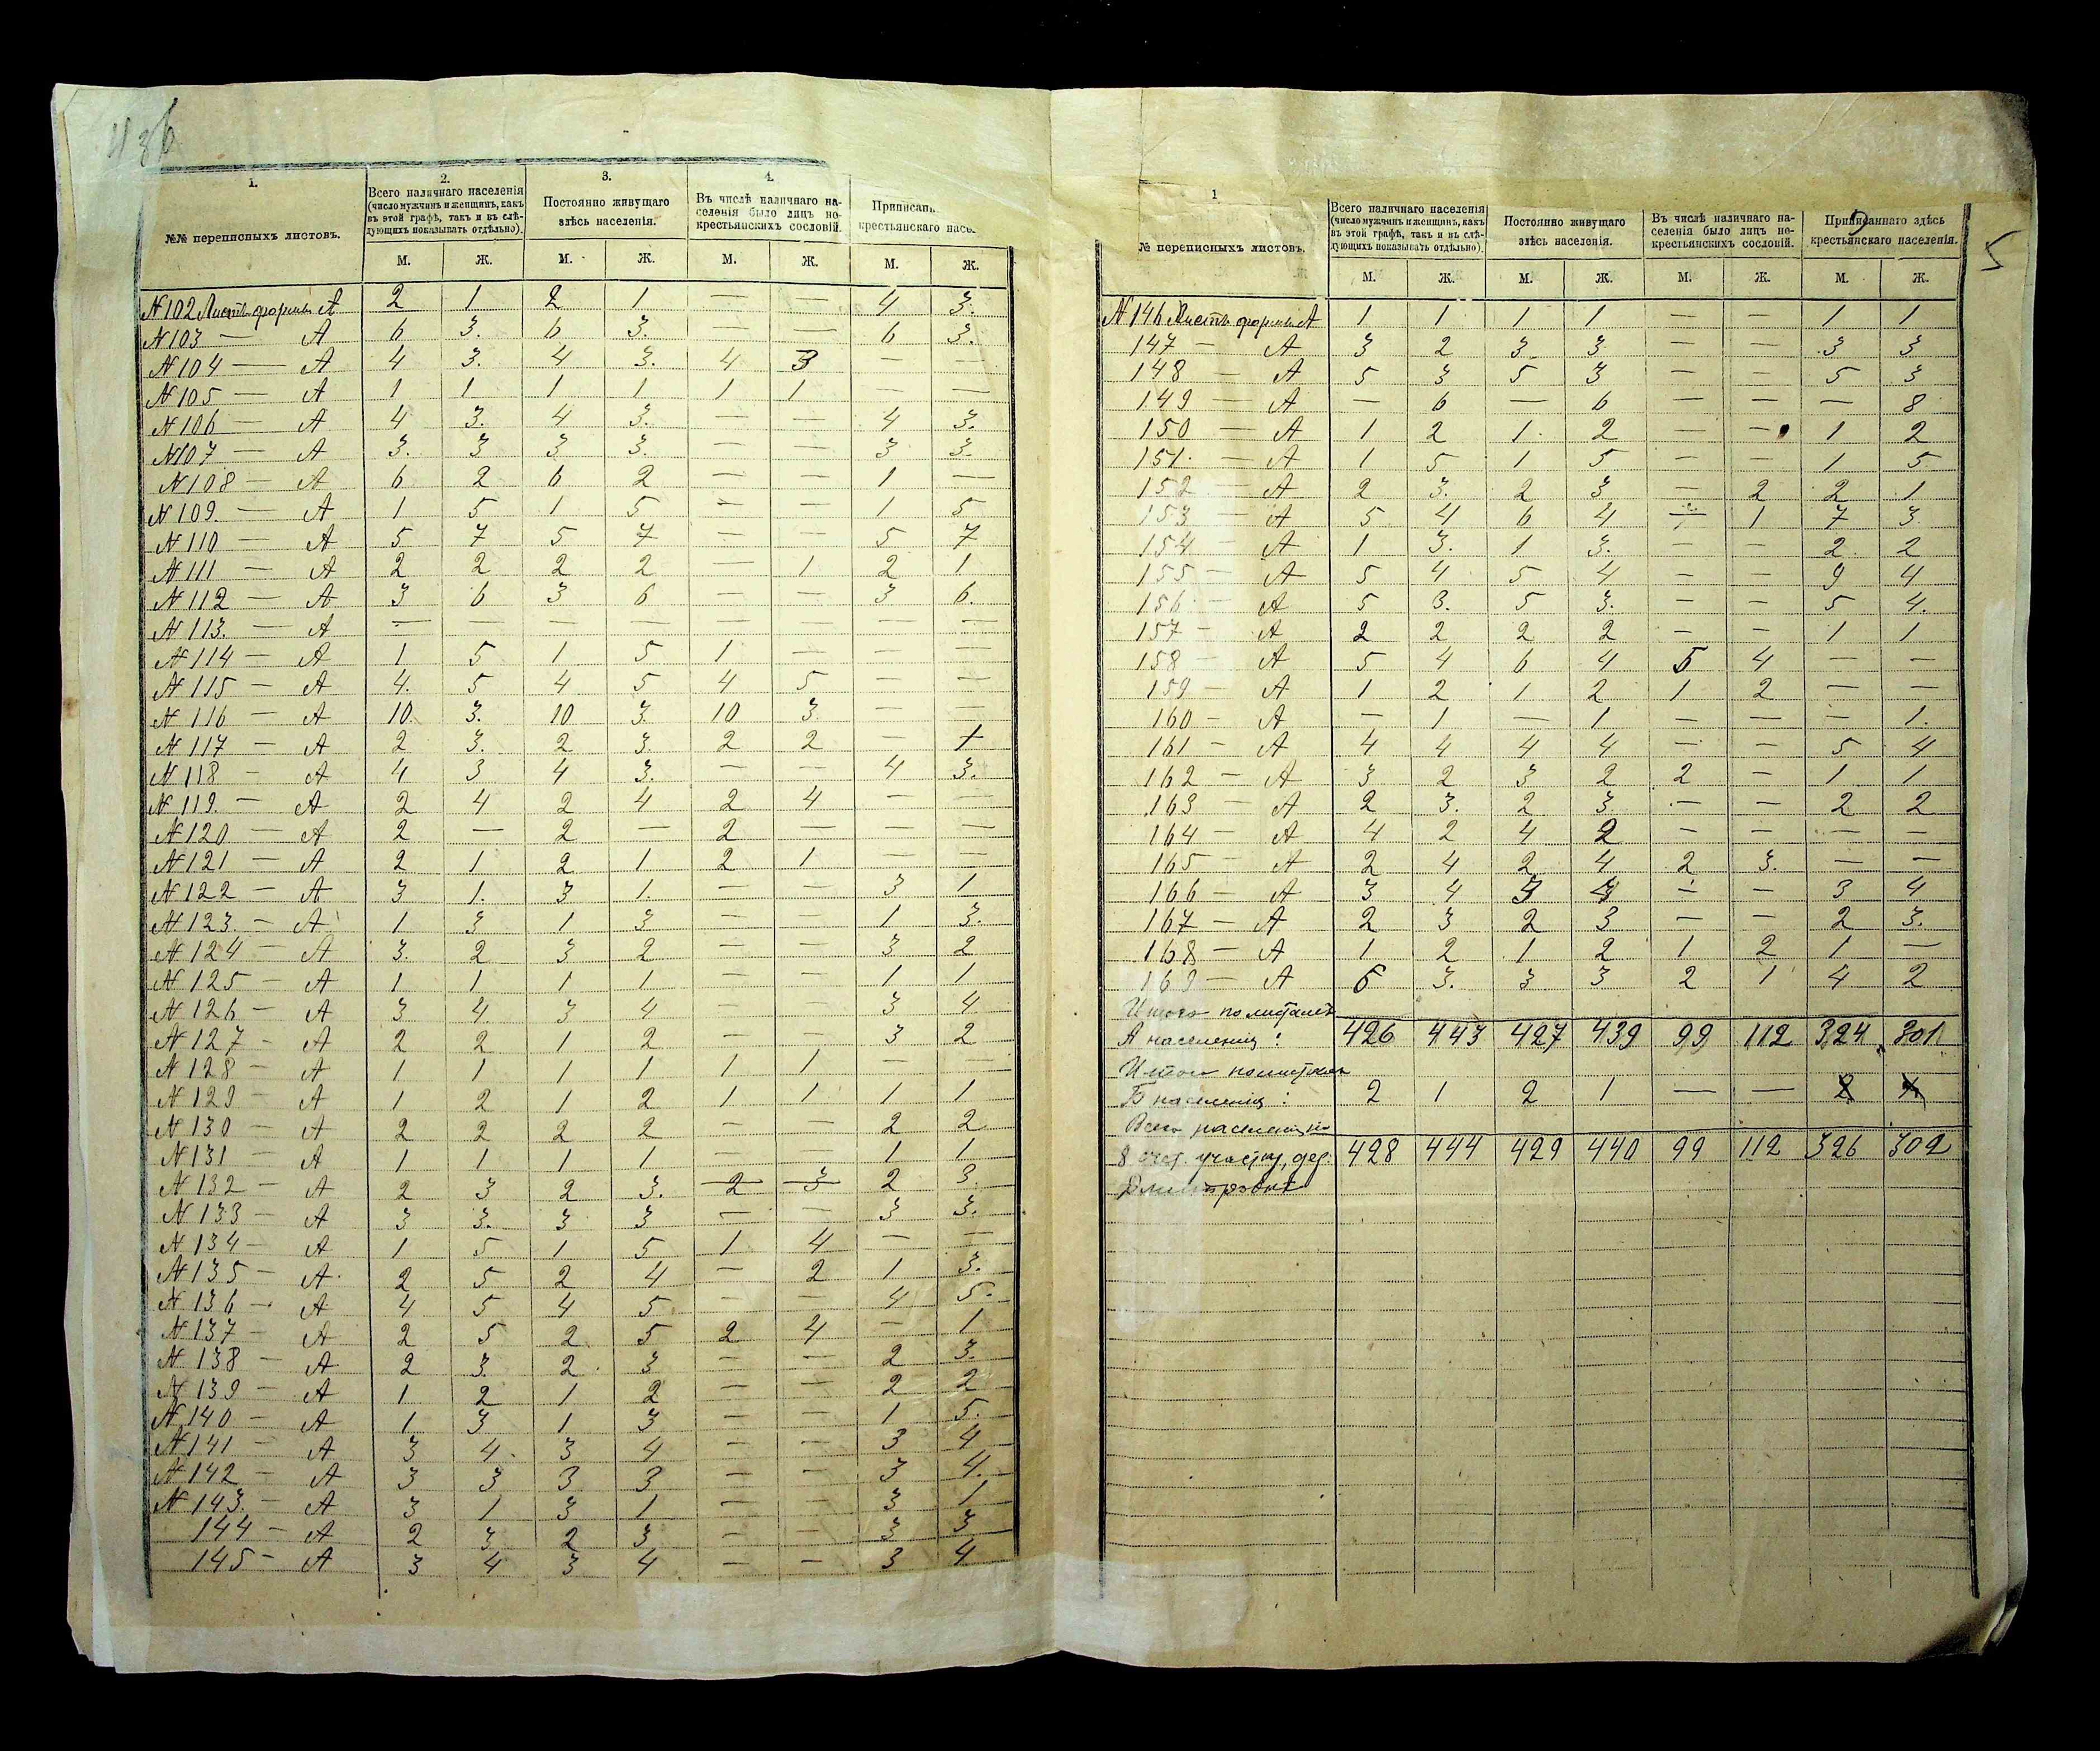 436
1. 2. 3. 4.
№№ переписныхъ листовъ. Всего наличнаго населенія (число мужчинъ и женщинъ, какъ въ этой графѣ, такъ и въ слѣдующихъ показывать отдѣльно). Постоянно живущаго здѣсь населенія. Въ числѣ наличнаго населенія было лицъ некрестьянскихъ сословій. Приписан крестьянскаго насе
М. Ж. М. Ж. М. Ж. М. Ж.
№102 Листъ формы А 2 1 2 1 — — 4 3.
№103 — А 6 3. 6 3. — — 6 3.
№104 — А 4 3. 4 3. 4 3 — —
№105 — А 1 1 1 1 1 1 — —
№106 — А 4 3. 4 3. — — 4 3.
№107 — А 3. 3 3 3. — — 3 3.
№108 — А 6 2 6 2 — — 1 —
№109. — А 1 5 1 5 — — 1 5
№110 — А 5 7 5 7 — — 5 7
№111 — А 2 2 2 2 — 1 2 1
№112 — А 3 6 3 6 — — 3 6.
№113. — А — — — — — — — —
№114 — А 1 5 1 5 1 — — —
№115 — А 4. 5 4 5 4 5 — —
№116 — А 10. 3. 10 3. 10 3 — —
№117 — А 2 3. 2 3. 2 2 — 1
№118 — А 4 3 4 3. — — 4 3.
№119. — А 2 4 2 4 2 4 — —
№120 — А 2 — 2 — 2 — — —
№121 — А 2 1 2 1 2 1 — —
№122 — А 3 1. 3 1. — — 3 1
№123 — А 1 3 1 3 — — 1 3.
№124 — А 3. 2 3 2 — — 3 2
№125 — А 1 1 1 1 — — 1 1
№126 — А 3 4 3 4 — — 3 4
№127 — А 2 2 1 2 — — 3 2
№128 — А 1 1 1 1 1 1 — —
№129 — А 1 2 1 2 1 1 1 1
№130 — А 2 2 2 2 — — 2 2
№131 — А 1 1 1 1 — — 1 1
№132 — А 2 3 2 3. 2 3 2 3.
№133 — А 3 3. 3 3 — — 3 3.
№134 — А 1 5 1 5 1 4 — —
№135 — А 2 5 2 4 — 2 1 3.
№136 — А 4 5 4 5 — — 4 5.
№137 — А 2 5 2 5 2 4 — 1
№138 — А 2 3. 2 3 — — 2 3.
№139 — А 1 2 1 2 — — 2 2
№140 — А 1 3 1 3 — — 1 5.
№141 — А 3 4 3 4 — — 3 4
№142 — А 3 3 3 3 — — 3 4.
№143. — А 3 1 3 1 — — 3 1
144 — А 2 3 2 3 — — 3 3
145 — А 3 4 3 4 — — 3 4
5
1
№ переписныхъ листовъ. Всего наличнаго населенія (число мужчинъ и женщинъ, какъ въ этой графѣ, такъ и въ слѣдующихъ показывать отдѣльно). Постоянно живущаго здѣсь населенія. Въ числѣ наличнаго населенія было лицъ некрестьянскихъ сословій. Приписаннаго здѣсь крестьянскаго населенія.
М. Ж. М. Ж. М. Ж. М. Ж.
№146 Листъ формы А 1 1 1 1 — — 1 1
147 — А 3 2 3 3 — — 3 3
148 — А 5 3 5 3 — — 5 3
149 — А — 6 — 6 — — — 8
150 — А 1 2 1. 2 — — 1 2
151. — А 1 5 1 5 — — 1 5
152 — А 2 3. 2 3 — 2 2 1
153 — А 5 4 6 4 — 1 7 3
154 — А 1 3. 1 3. — — 2. 2
155 — А 5 4 5 4 — — 9 4
156 — А 5 3. 5 3. — — 5 4.
157 — А 2 2 2 2 — — 1 1
158 — А 5 4 6 4 5 4 — —
159 — А 1 2 1 2 1 2 — —
160 — А — 1 — 1 — — — 1.
161 — А 4 4 4 4 — — 5 4
162 — А 3 2 3 2 2 — 1 1
163 — А 2 3. 2 3 — — 2 2
164 — А 4 2 4 2 — — — —
165 — А 2 4 2 4 2 3. — —
166 — А 3 4 3 4 — — 3 4
167 — А 2 3 2 3 — — 2 3.
168 — А 1 2 1 2 1 2 1 —
169 — А 6 3. 3 3 2 1 4 2
Итого по листамъ
А населенія: 426 443 427 439 99 112 324 301
Итого по листамъ
Б населенія: 2 1 2 1 — —
Всего населенія
8 счет. участку, дер. 428 444 429 440 99 112 326 302